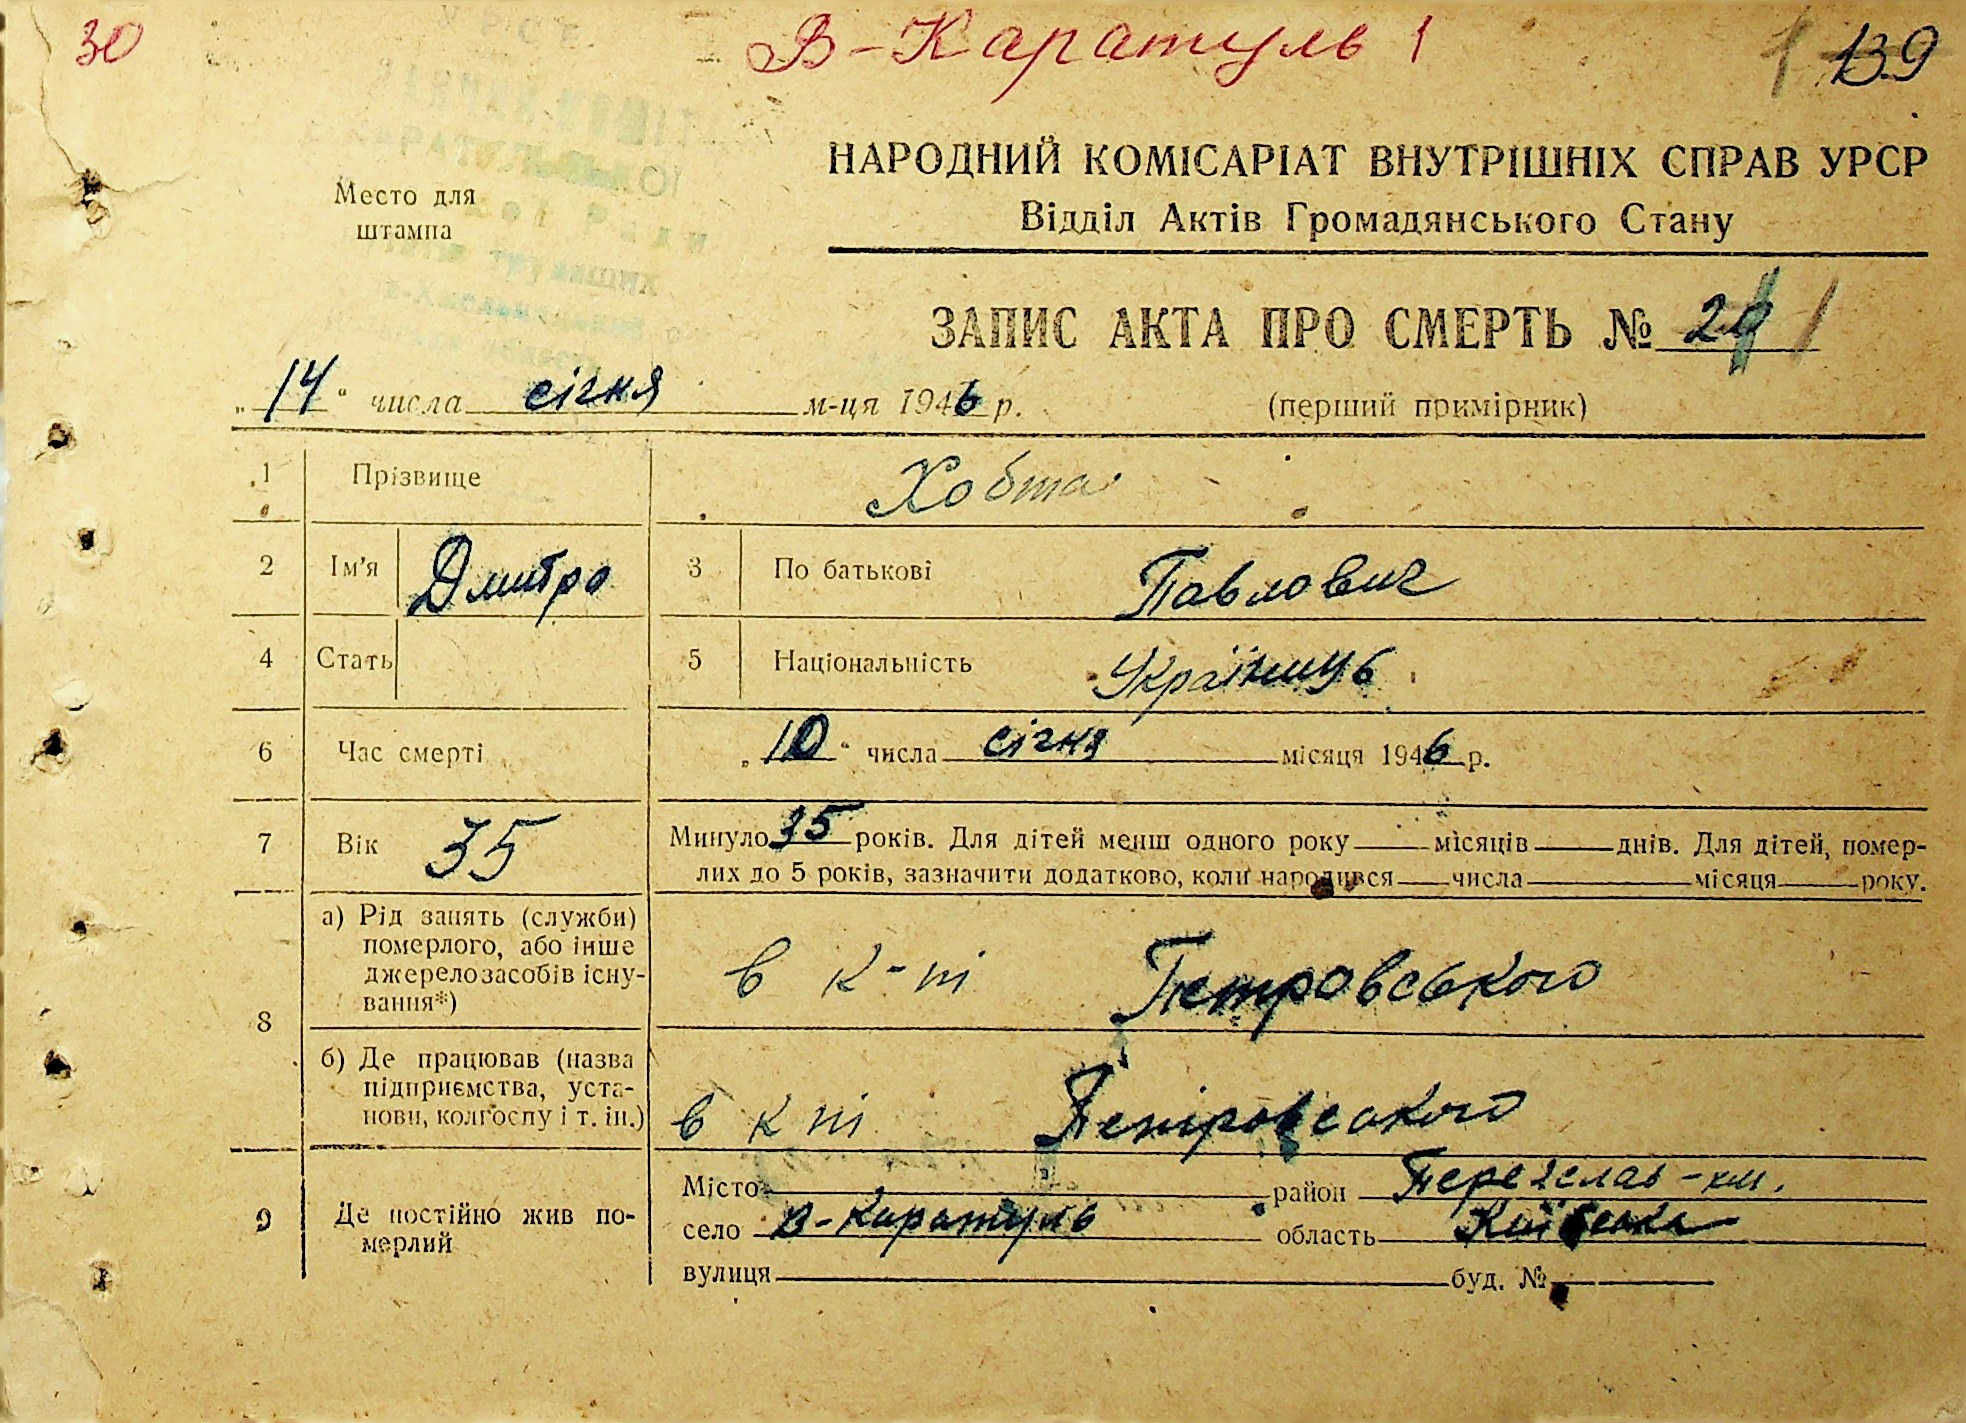 30 В-Каратуль 1 139
НАРОДНИЙ КОМІСАРІАТ ВНУТРІШНІХ СПРАВ УРСР
Відділ Актів Громадянського Стану
Место для
штампа
ЗАПИС АКТА ПРО СМЕРТЬ №
„14“ числа січня м-ця 1946 р. (перший примірник)
1 Прізвище Хобта
2 Ім'я Дмитро 3 По батькові Павлович
4 Стать 5 Національність Українць
6 Час смерті „10“ числа січня місяця 1946 р.
7 Вік 35 Минуло 35 років. Для дітей менш одного року місяців днів. Для дітей, помер-
лих до 5 років, зазначити додатково, коли народився числа місяця року.
8 а) Рід занять (служби)
померлого, або інше
джерело засобів існу-
вання*)
в к-ті Петровського
б) Де працював (назва
підприємства, уста-
нови, колгоспу і т. ін.)
в к ті Петровського
9 Де постійно жив по-
мерлий
Місто район Переяслав-хм.
село В-Каратуль область Київська
вулиця буд. №